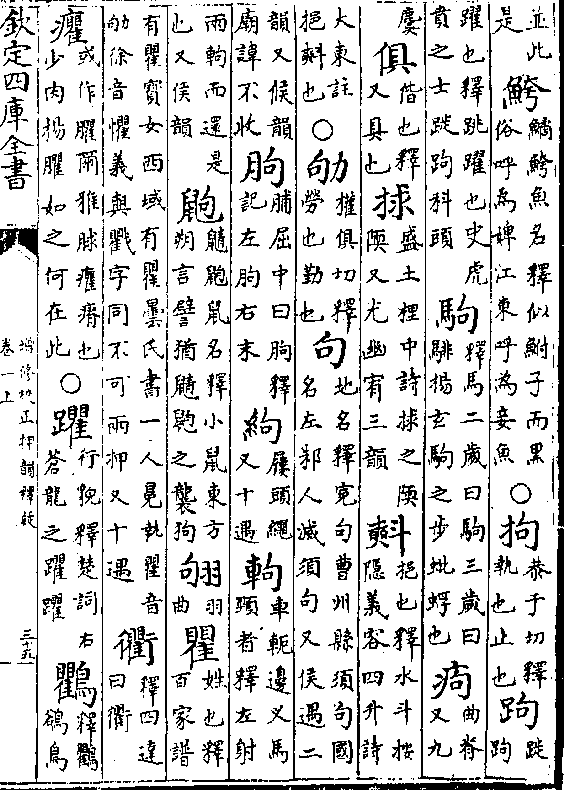 並此是鮬鱊鮬魚名釋似鮒子而黑俗呼為婢江東呼為妾魚○拘恭于切釋執也止也跔跌跔
躍也釋跳躍也史虎賁之士跌跔科頭駒釋馬二歲曰駒三歲曰騑揚玄駒之步蚍蜉也痀曲脊又九
麌俱偕也釋又具也捄盛土梩中詩捄之陾陾又尤幽宥三韻㪺挹也釋水斗按隱義容四升詩
大東註挹㪺也○劬權俱切釋勞也勤也句地名釋寃句曹州縣須句國名左邾人滅須句又侯遇二
韻又候韻廟諱不收朐脯屈中曰朐釋記左朐右末絇屨頭繩又十遇軥車軛邊叉馬頸者釋左射
兩軥而還是也又侯韻鼩䶅鼩鼠名釋小鼠東方朔言譬猶䶅鼩之襲狗翑羽曲瞿姓也釋百家譜
有瞿寳女西域有瞿曇氏書一人冕執瞿音劬徐音懼義與戵字同不可兩押又十遇衢釋四達曰衢
癯或作臞爾雅脙癯瘠也少肉揚臞如之何在此○躣行貌釋楚詞右蒼龍之躣躣鸜釋鸜鵒鳥
欽定四庫全書
增修校正押韻釋疑
卷一上
三十五